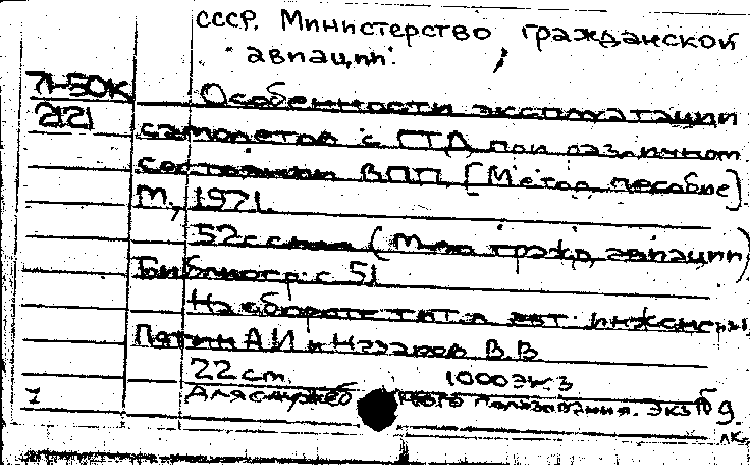 СССР. Министерство гражданской
авиации.
71-50К Особенности эксплуатации
2121 самолетов с ГТД при различном
состоянии ВПП. [Метод. пособие]
М., 1971.
52 с (М-во гражд. авиации)
Библиогр: с 51
На обороте тит. л. авт: инженеры
Пятин А И и Назаров В В
22 см. 1000 экз
7 Для служеб ного пользования. Экз № 9.